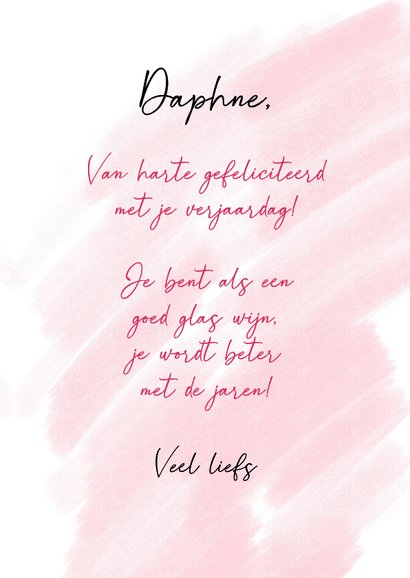 Daphne,
Van harte gefeliciteerd
met je verjaardag!
Je bent als een
goed glas wijn,
je wordt beter
met de jaren!
Veel liefs